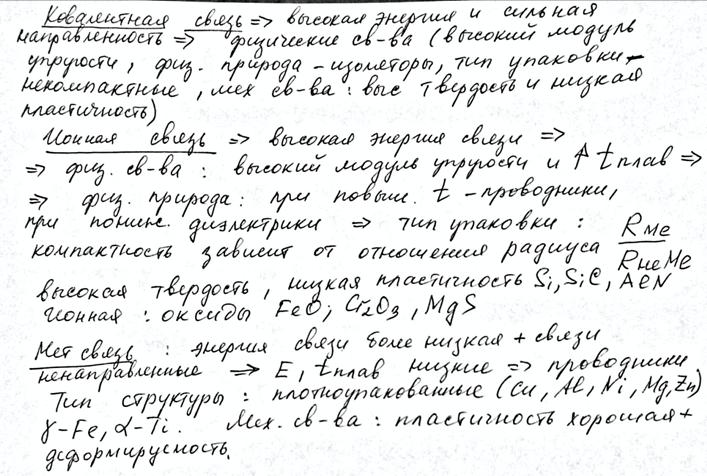 Ковалентная связь => высокая энергия и сильная
направленность => физические св-ва (высокий модуль
упругости, физ. природа - изоляторы, тип упаковки -
некомпактные, мех св-ва: выс твердость и низкая
пластичность)
Ионная связь => высокая энергия связи =>
=> физ. св-ва: высокий модуль упругости и ↑ t плав =>
=> физ. природа: при повыш. t - проводники,
при пониж. диэлектрики => тип упаковки: R ме
компактность зависит от отношения радиуса R неме
высокая твердость, низкая пластичность Si, SiC, AlN
Ионная: оксиды FeO, Cr2O3, MgS
Мет связь: энергия связи более низкая + связи
ненаправленные => E, t плав низкие => проводники
Тип структуры: плотноупакованные (Cu, Al, Ni, Mg, Zn)
γ-Fe, α-Ti. Мех. св-ва: пластичность хорошая +
деформируемость.